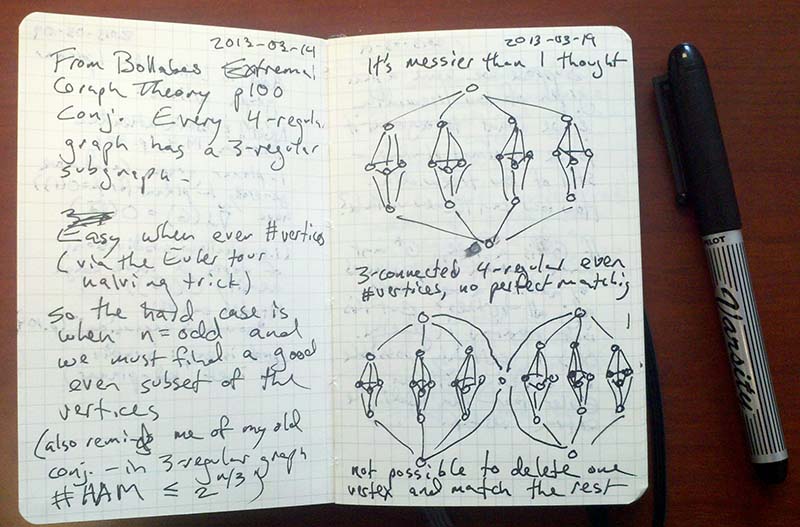 2013-03-14
From Bollabas Extremal
Graph Theory p100
Conj. Every 4-regular
graph has a 3-regular
subgraph.
Easy when even #vertices
(via the Euler tour
halving trick)
So the hard case is
when n=odd and
we must find a good
even subset of the
vertices
(also reminds me of my old
conj. - in 3-regular graph
#HAM ≤ 2^n/3)
2013-03-19
It's messier than I thought
3-connected 4-regular even
#vertices, no perfect matching
not possible to delete one
vertex and match the rest
PILOT
Varsity